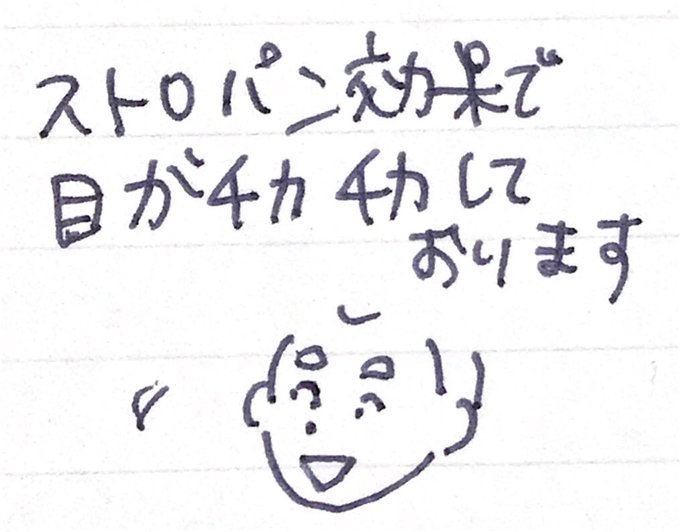 ストロパン効果で
目がチカチカして
おります